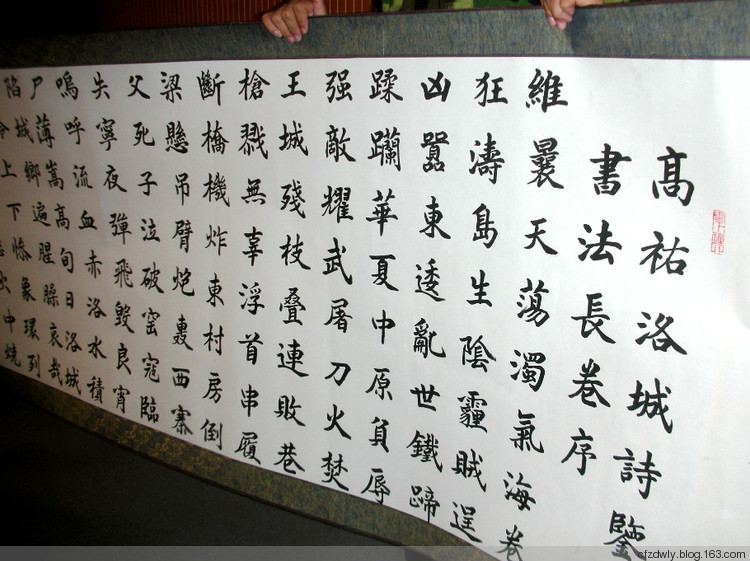 髙祐洛城詩鑒
書法長卷序
維曩天蕩濁氣海卷
狂濤島生陰霾賊逞
凶囂東逶亂世鐵蹄
蹂躪華夏中原負辱
强敵耀武屠刀火焚
王城殘枝叠連敗巷
槍戮無辜浮首串屐
斷橋機炸東村房倒
梁懸吊臂炮轟西寨
父死子泣破窑寇臨
失寧夜彈飛毀良宵
嗚呼流血赤洛水積
尸薄嵩高旬日洛城
陷城鄉遍腥臊哀哉
上下慘象環列
火中燒
cfzdwly.blog.163.com